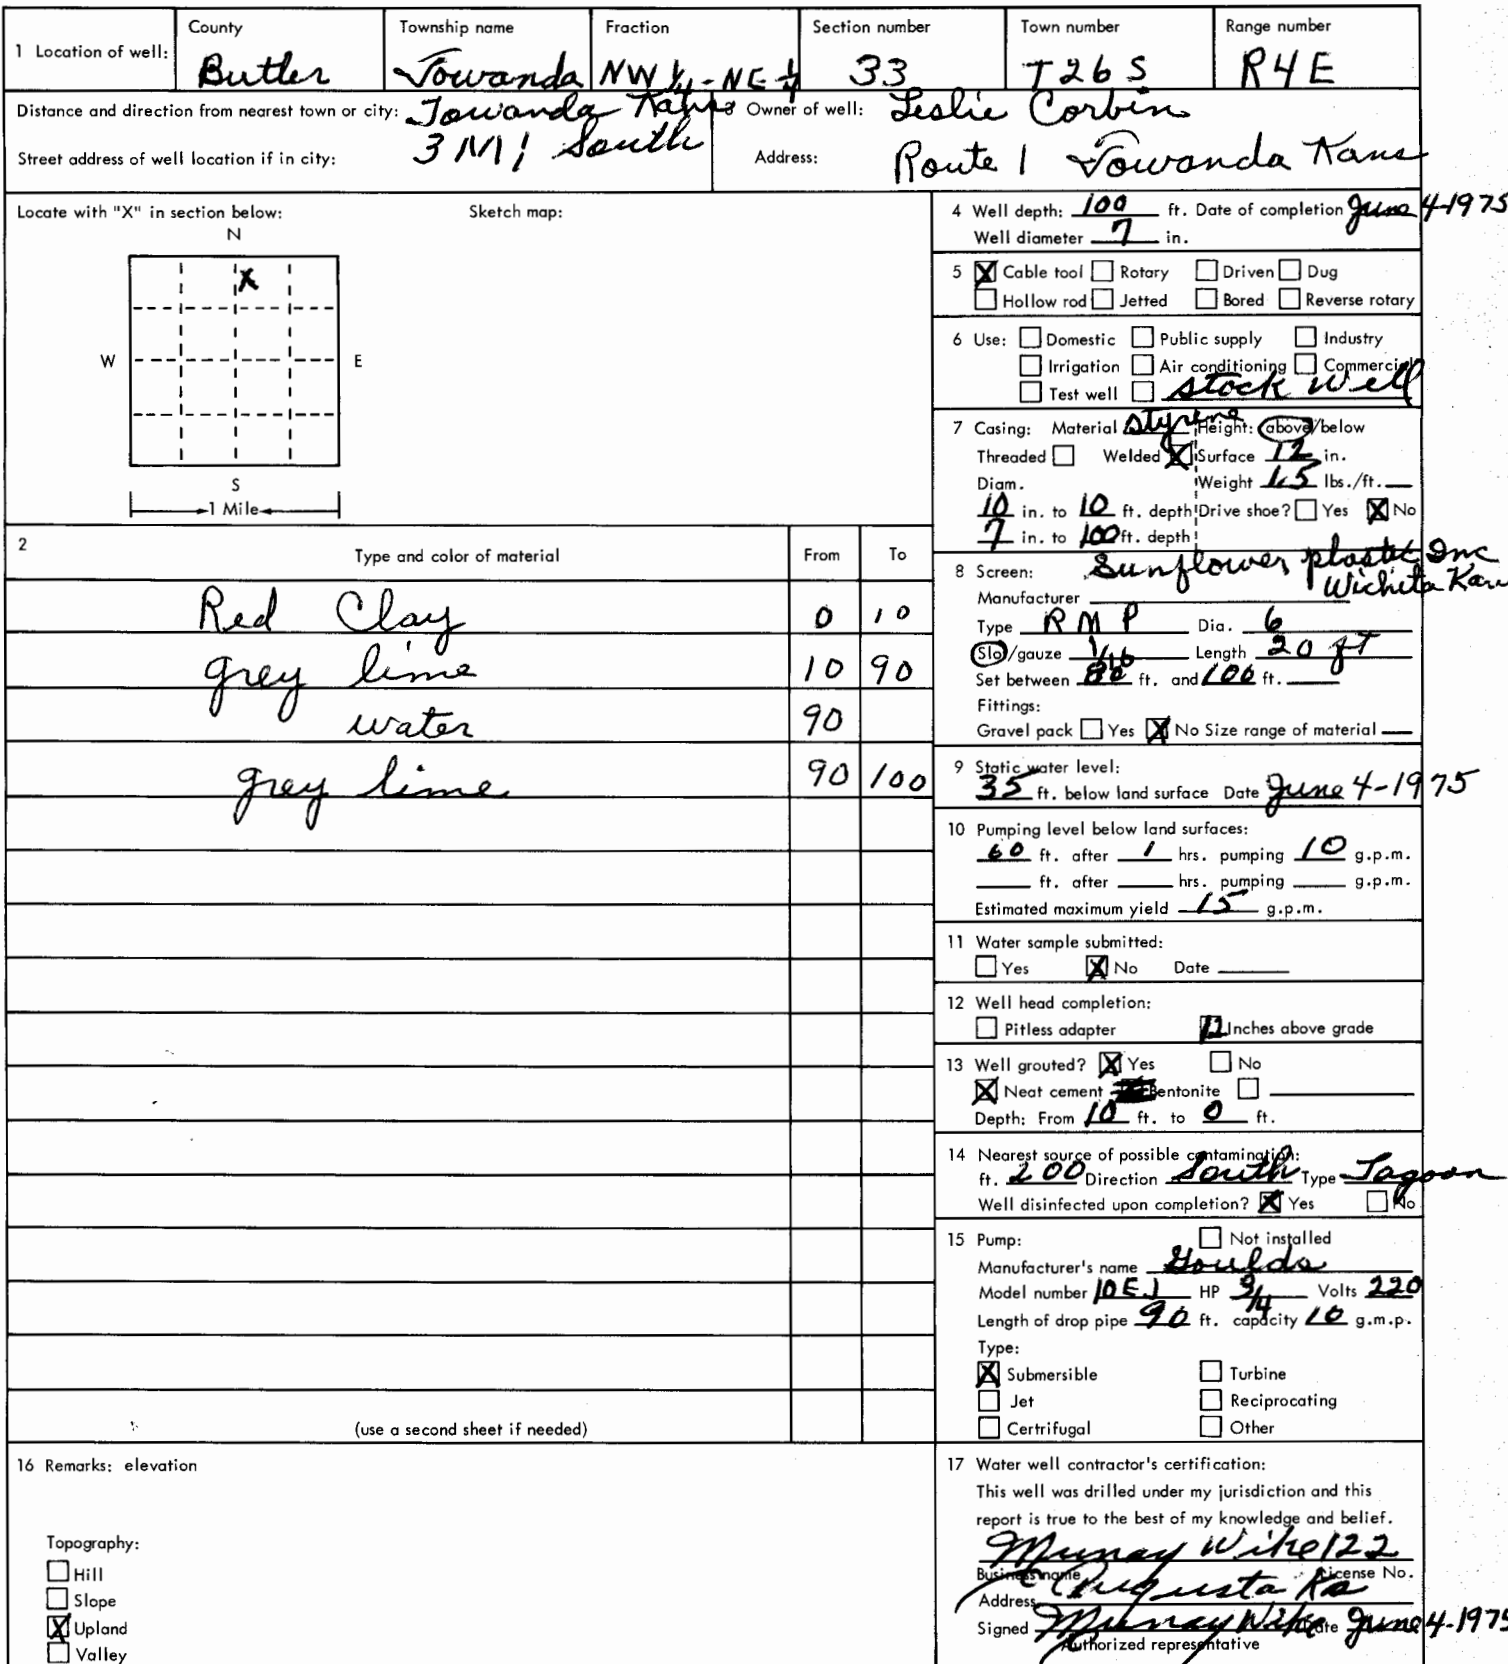 1 Location of well: County Butler Township name Towanda Fraction NW 1/4 - NE 1/4 Section number 33 Town number T26S Range number R4E
Distance and direction from nearest town or city: Towanda Kans
Street address of well location if in city: 3 Mi South
3 Owner of well: Leslie Corbin
Address: Route 1 Towanda Kans
Locate with "X" in section below: Sketch map:
N
X
W E
S
1 Mile
2 Type and color of material From To
Red Clay 0 10
grey lime 10 90
water 90
grey lime 90 100
(use a second sheet if needed)
4 Well depth: 100 ft. Date of completion June 4-1975
Well diameter 7 in.
5 X Cable tool Rotary Driven Dug
Hollow rod Jetted Bored Reverse rotary
6 Use: Domestic Public supply Industry
Irrigation Air conditioning Commercial
Test well stock well
7 Casing: Material styrene Height: above/below
Threaded Welded X Surface 12 in.
Diam. Weight 1.5 lbs./ft.
10 in. to 10 ft. depth Drive shoe? Yes X No
7 in. to 100 ft. depth
8 Screen: Sunflower plastic Inc
Manufacturer Wichita Kans
Type RMP Dia. 6
Slo/gauze 1/16 Length 20 ft
Set between 80 ft. and 100 ft.
Fittings:
Gravel pack Yes X No Size range of material
9 Static water level:
35 ft. below land surface Date June 4-1975
10 Pumping level below land surfaces:
60 ft. after 1 hrs. pumping 10 g.p.m.
ft. after hrs. pumping g.p.m.
Estimated maximum yield 15 g.p.m.
11 Water sample submitted:
Yes X No Date
12 Well head completion:
Pitless adapter 12 Inches above grade
13 Well grouted? X Yes No
X Neat cement Bentonite
Depth: From 10 ft. to 0 ft.
14 Nearest source of possible contamination:
ft. 200 Direction South Type Lagoon
Well disinfected upon completion? X Yes No
15 Pump: Not installed
Manufacturer's name Goulds
Model number 10EJ HP 3/4 Volts 220
Length of drop pipe 90 ft. capacity 10 g.m.p.
Type:
X Submersible Turbine
Jet Reciprocating
Certrifugal Other
16 Remarks: elevation
Topography:
Hill
Slope
X Upland
Valley
17 Water well contractor's certification:
This well was drilled under my jurisdiction and this
report is true to the best of my knowledge and belief.
Murray Wike 122
Business name License No.
Address Augusta Ks
Signed Murray Wike Date June 4-1975
Authorized representative